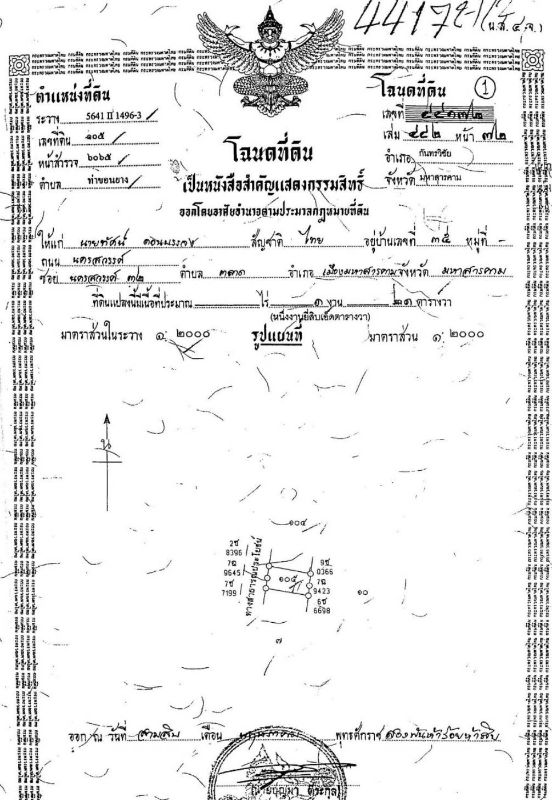 44172
(น.ส.๔ จ.)
ตำแหน่งที่ดิน
ระวาง 5641 II 1496-3
เลขที่ดิน ๑๐๕
หน้าสำรวจ ๖๐๖๕
ตำบล ท่าขอนยาง
โฉนดที่ดิน ๑
เลขที่ ๔๔๑๗๒
เล่ม ๔๔๒ หน้า ๗๒
อำเภอ กันทรวิชัย
จังหวัด มหาสารคาม
โฉนดที่ดิน
เป็นหนังสือสำคัญแสดงกรรมสิทธิ์
ออกโดยอาศัยอำนาจตามประมวลกฎหมายที่ดิน
ให้แก่ นายทัศน์ สัญชาติ ไทย อยู่บ้านเลขที่ ๓๕ หมู่ที่ -
ถนน นครสวรรค์
ซอย นครสวรรค์ ๓๒ ตำบล ตลาด อำเภอ เมืองมหาสารคาม จังหวัด มหาสารคาม
ที่ดินแปลงนี้มีเนื้อที่ประมาณ - ไร่ ๑ งาน ๒๑ ตารางวา
(หนึ่งงานยี่สิบเอ็ดตารางวา)
มาตราส่วนในระวาง ๑: ๒๐๐๐ รูปแผนที่ มาตราส่วน ๑: ๒๐๐๐
น
๑๐๔
2ช
8396
7ฌ
9645
7ช
7199
ทางสาธารณประโยชน์
๑๐๕
9ช
0366
7ฌ
9423
6ช
6698
๑๐
๗
ออก ณ วันที่ สามสิบ เดือน พุทธศักราช สองพันห้าร้อยห้าสิบ